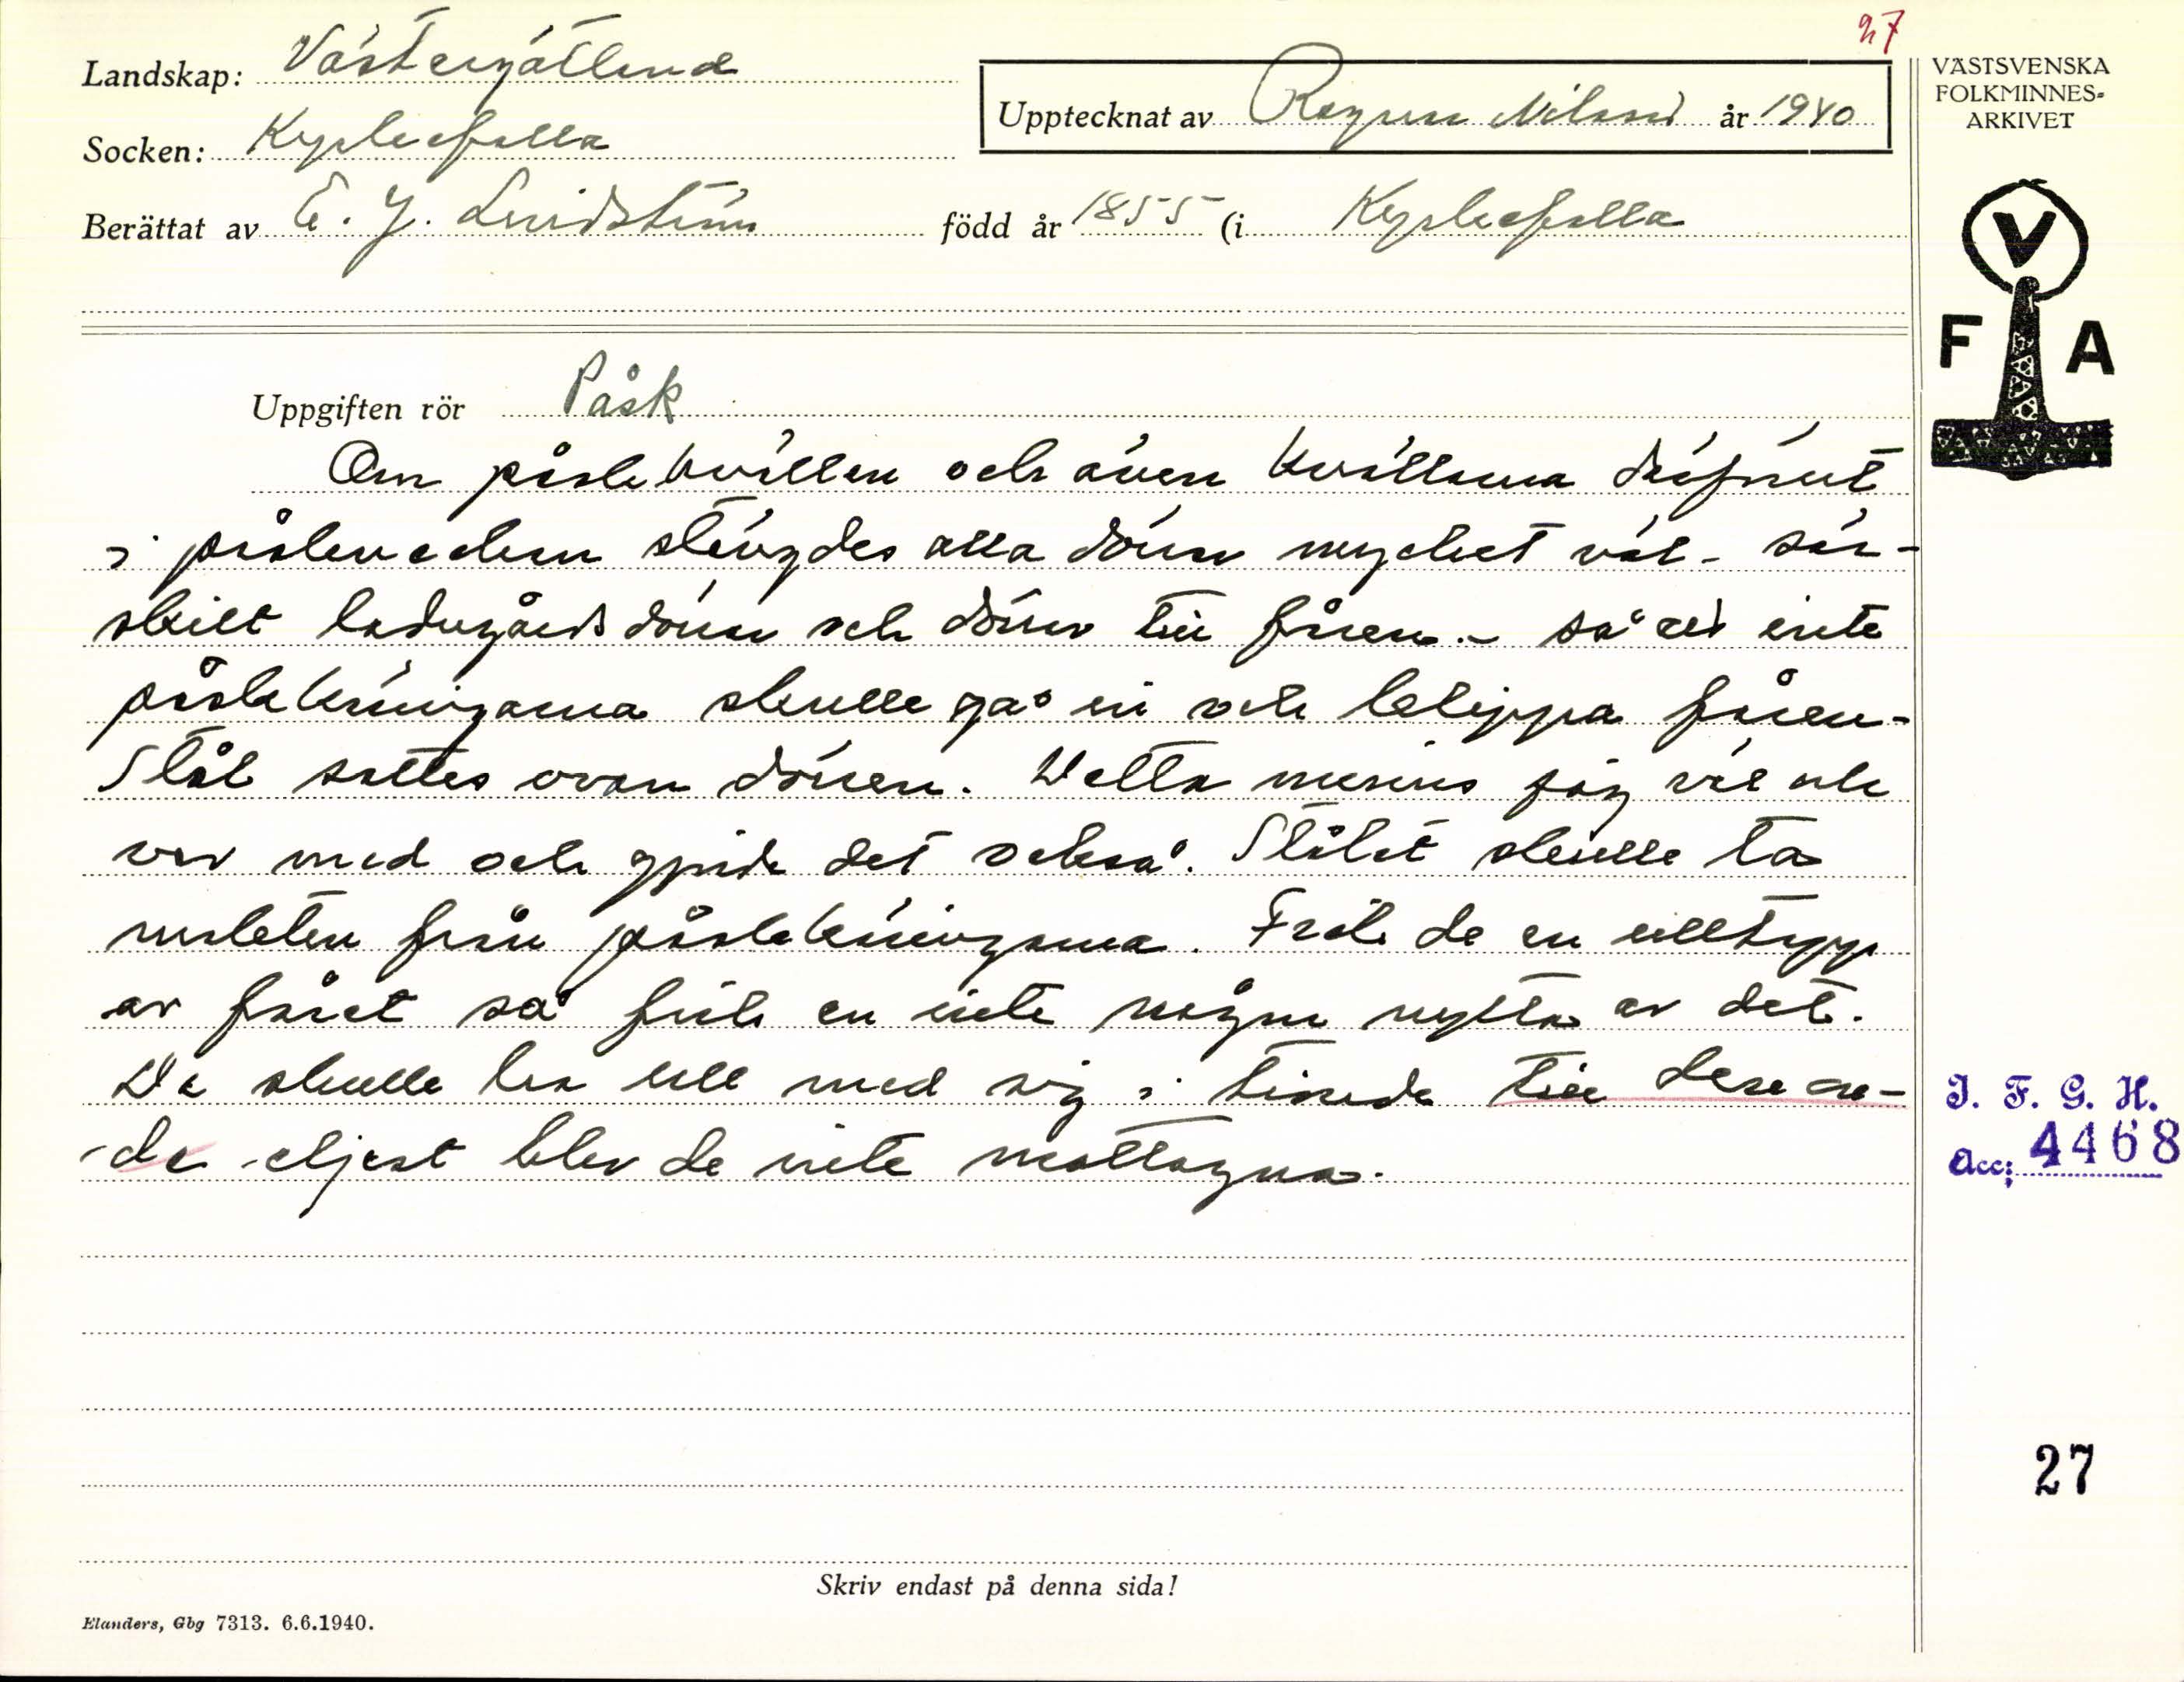 27
Landskap: Västergötland
Upptecknat av Ragnar Nilsson år 1940
VÄSTSVENSKA
FOLKMINNES-
ARKIVET
Socken: Kyrkefalla
Berättat av E. J. Lindström född år 1855 (i Kyrkefalla
V
F A
Uppgiften rör Påsk
Om påskkvällen och även kvällarna däförut
i påskveckan stängdes alla dörrar mycket väl - sär-
skilt ladugårdsdörrar och dörrar till fåren - så att inte
påskkäringarna skulle gå in och klippa fåren -
Stål sattes ovan dörren. Detta minns jag väl och
var med och gjorde det också. Stålet skulle ta
makten från påskkäringarna. Fick de en ulltapp
av fåret så fick en inte någon nytta av det.
De skulle ha ull med sig i tionde till den on-
de eljest blev de inte mottagna.
I. F. G. H.
Acc; 4468
27
Skriv endast på denna sida!
Elanders, Gbg 7313. 6.6.1940.